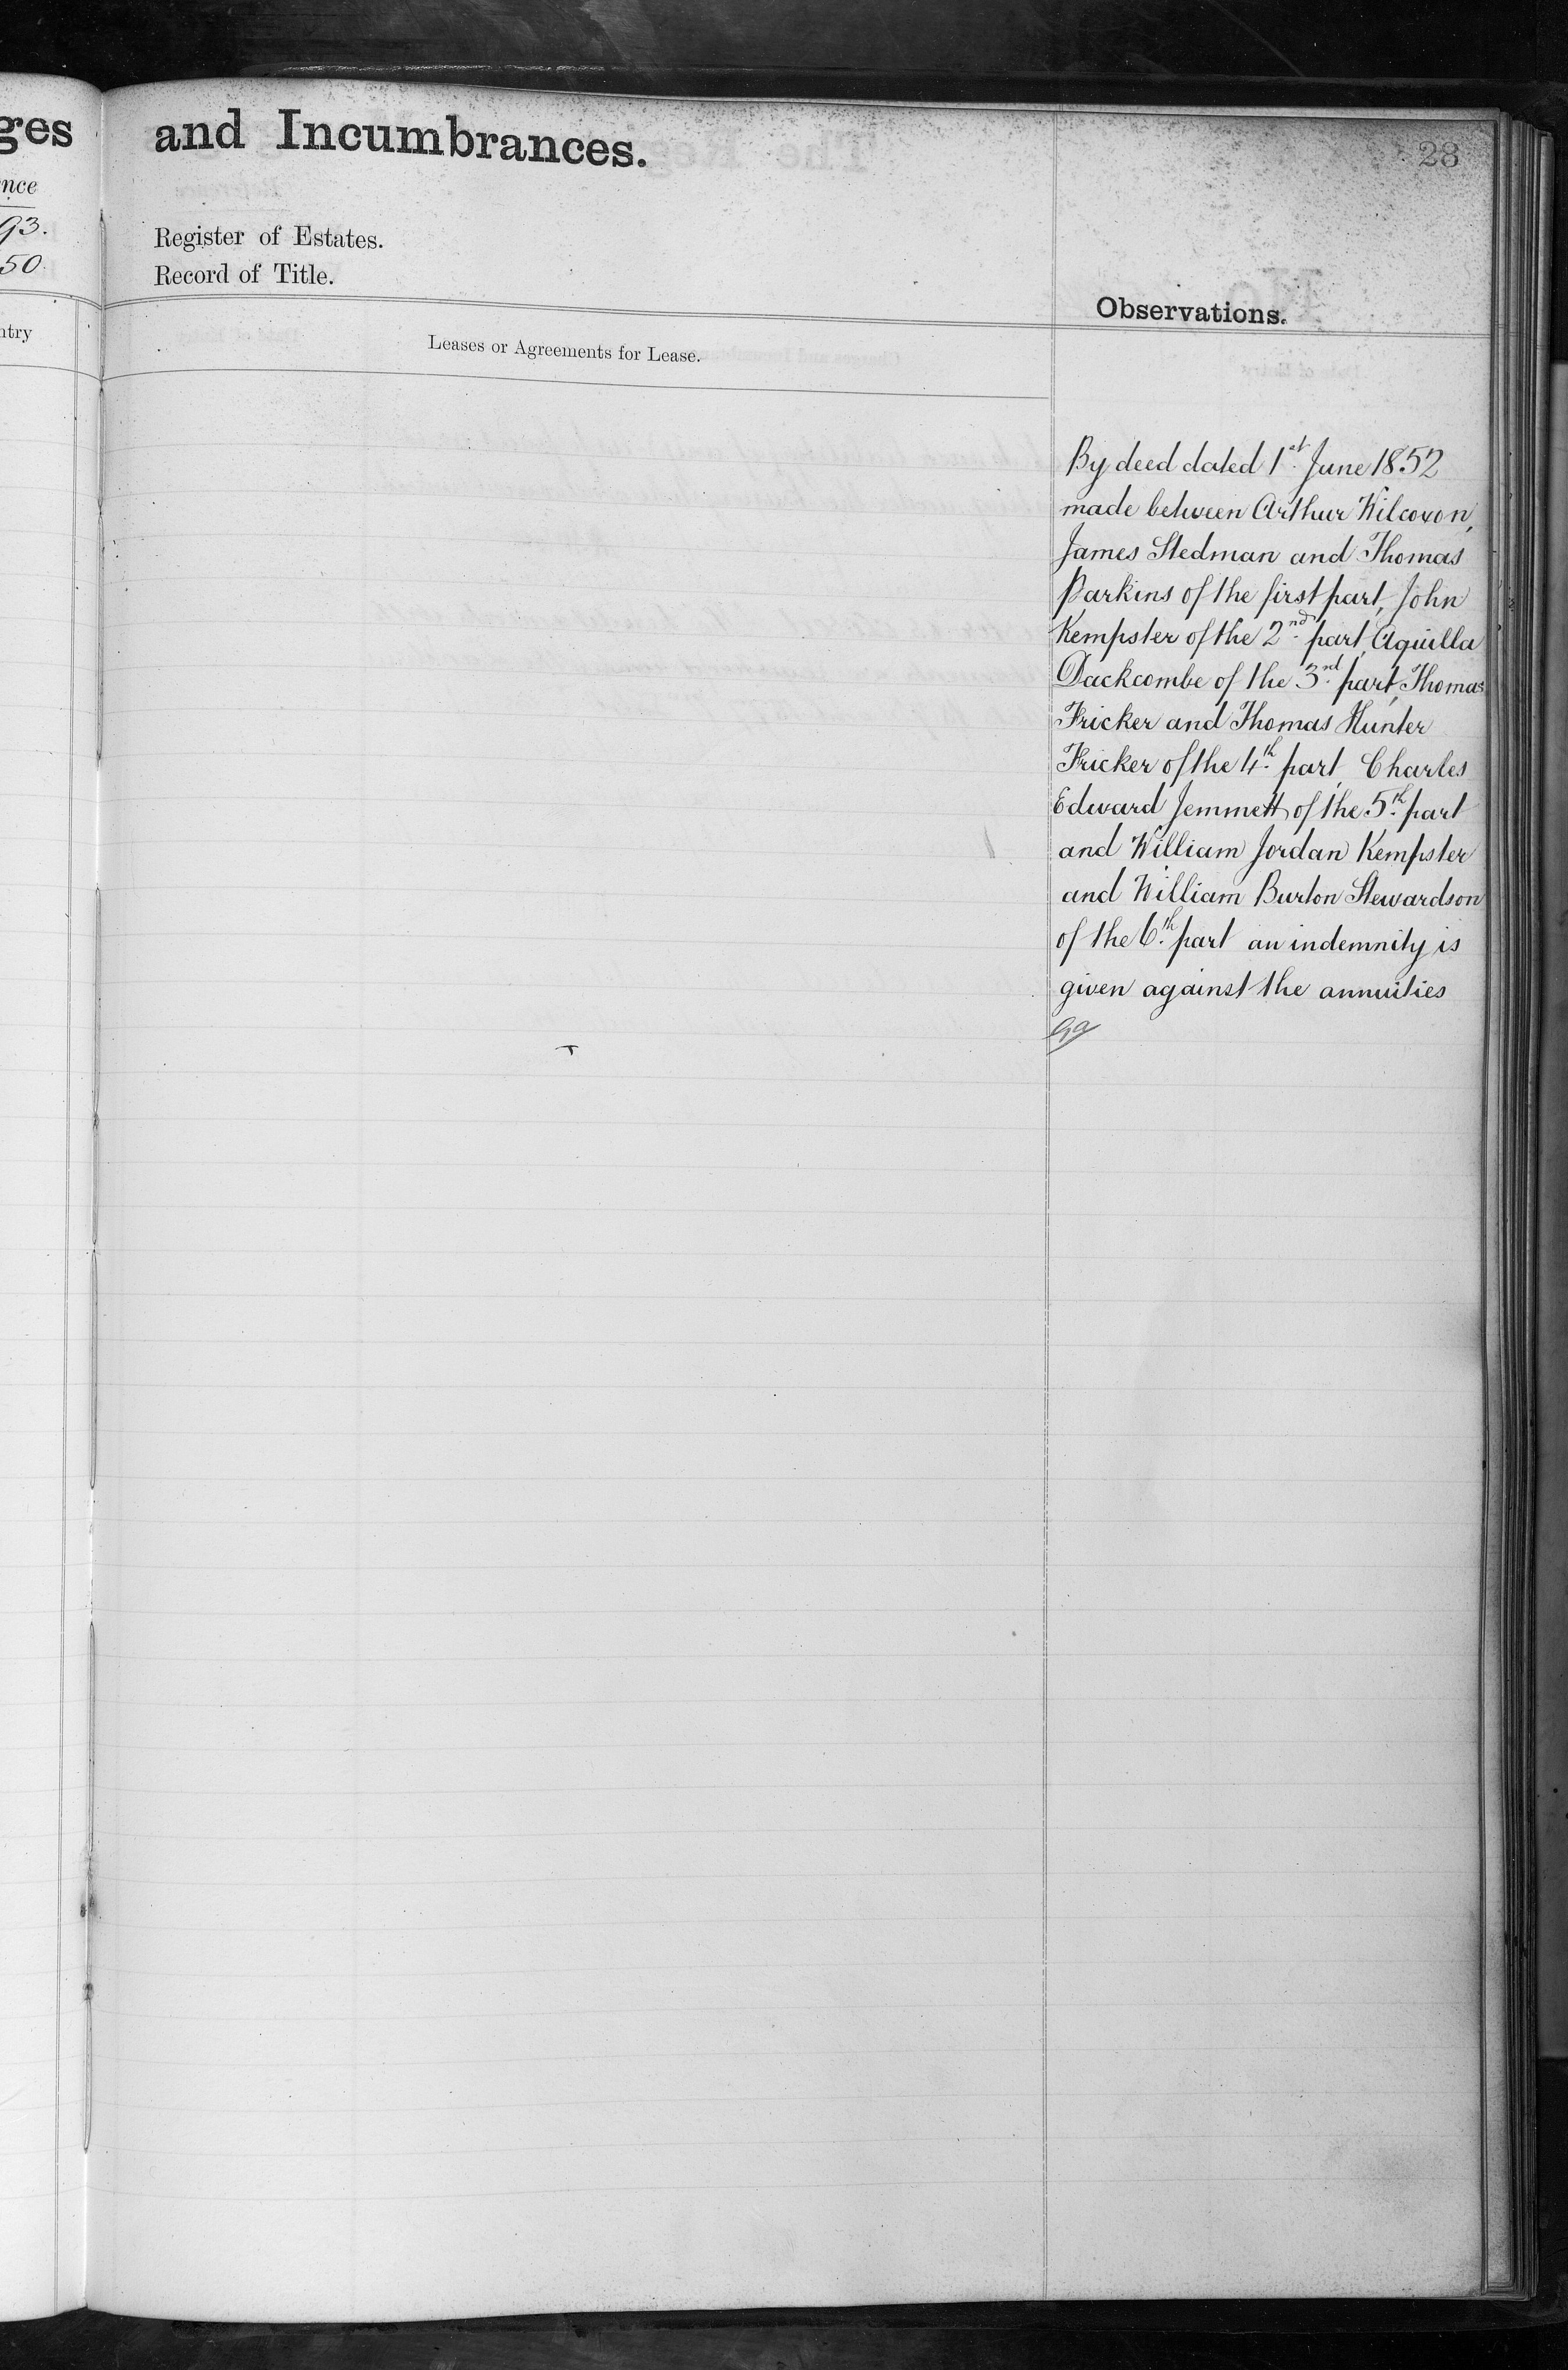 ges
and Incumbrances.
28
nce
93.
50.
Register of Estates.
Record of Title.
Observations.
ntry
Leases or Agreements for Lease.
By deed dated 1st. June 1852
made between Arthur Wilcoxon,
James Stedman and Thomas
Parkins of the first part, John
Kempster of the 2nd. part, Aquilla
Dackcombe of the 3rd. part, Thomas
Fricker and Thomas Hunter
Fricker of the 4th. part, Charles
Edward Jemmett of the 5th. part
and William Jordan Kempster
and William Burton Stewardson
of the 6th. part an indemnity is
given against the annuities